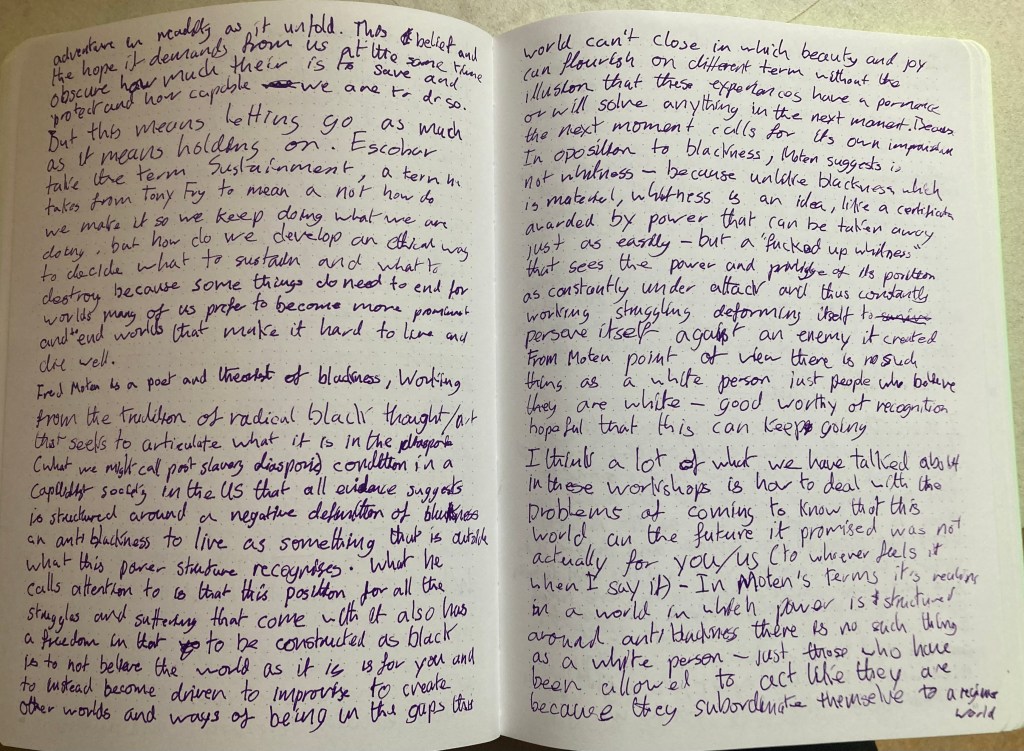 adventure in readily as it unfold. This belief and
the hope it demands from us at the same time
obscure how much their is to save and
protect and how capable we are to do so.
But this means letting go as much
as it means holding on. Escobar
take the term Sustainment, a term he
takes from Tony Fry to mean a not how do
we make it so we keep doing what we are
doing, but how do we develop an ethical way
to decide what to sustain and what to
destroy because some things do need to end for
worlds many of us prefer to become more prominent
and end worlds that make it hard to live and
die well.
Fred Moten is a poet and theorist of blackness, Working
from the tradition of radical black thought/art
that seeks to articulate what it is in the diasporic
(what we might call post slavery diasporic) condition in a
capitalist society in the US that all evidence suggests
is structured around a negative definition of blackness
an anti blackness to live as something that is outside
what this power structure recognises. What he
calls attention to is that this position for all the
struggles and suffering that come with it also has
a freedom in that to be constructed as black
is to not believe the world as it is is for you and
to instead become driven to improvise to create
other worlds and ways of being in the gaps this
world can't close in which beauty and joy
can flourish on different term without the
illusion that these experiences have a permance
or will solve anything in the next moment. Because
the next moment calls for its own improvisation
In oposition to blackness, Moten suggests is
not whitness – because unlike blackness which
is material, whitness is an idea, like a certificate
awarded by power that can be taken away
just as easily – but a "fucked up whitness"
that sees the power and privilige of its position
as constantly under attack and thus constantly
working struggling deforming itself to survive
persave itself against an enemy it created
From Moten point of view there is no such
thing as a white person just people who believe
they are white – good worthy of recognition
hopeful that this can keep going
I think a lot of what we have talked about
in these workshops is how to deal with the
problems of coming to know that this
world, an the future it promised was not
actually for you/us (to whoever feels it
when I say it) – In Moten's terms it's realising
in a world in which power is structured
around anti blackness there is no such thing
as a white person – just those who have
been allowed to act like they are
because they subordinate themselve to a regime
world